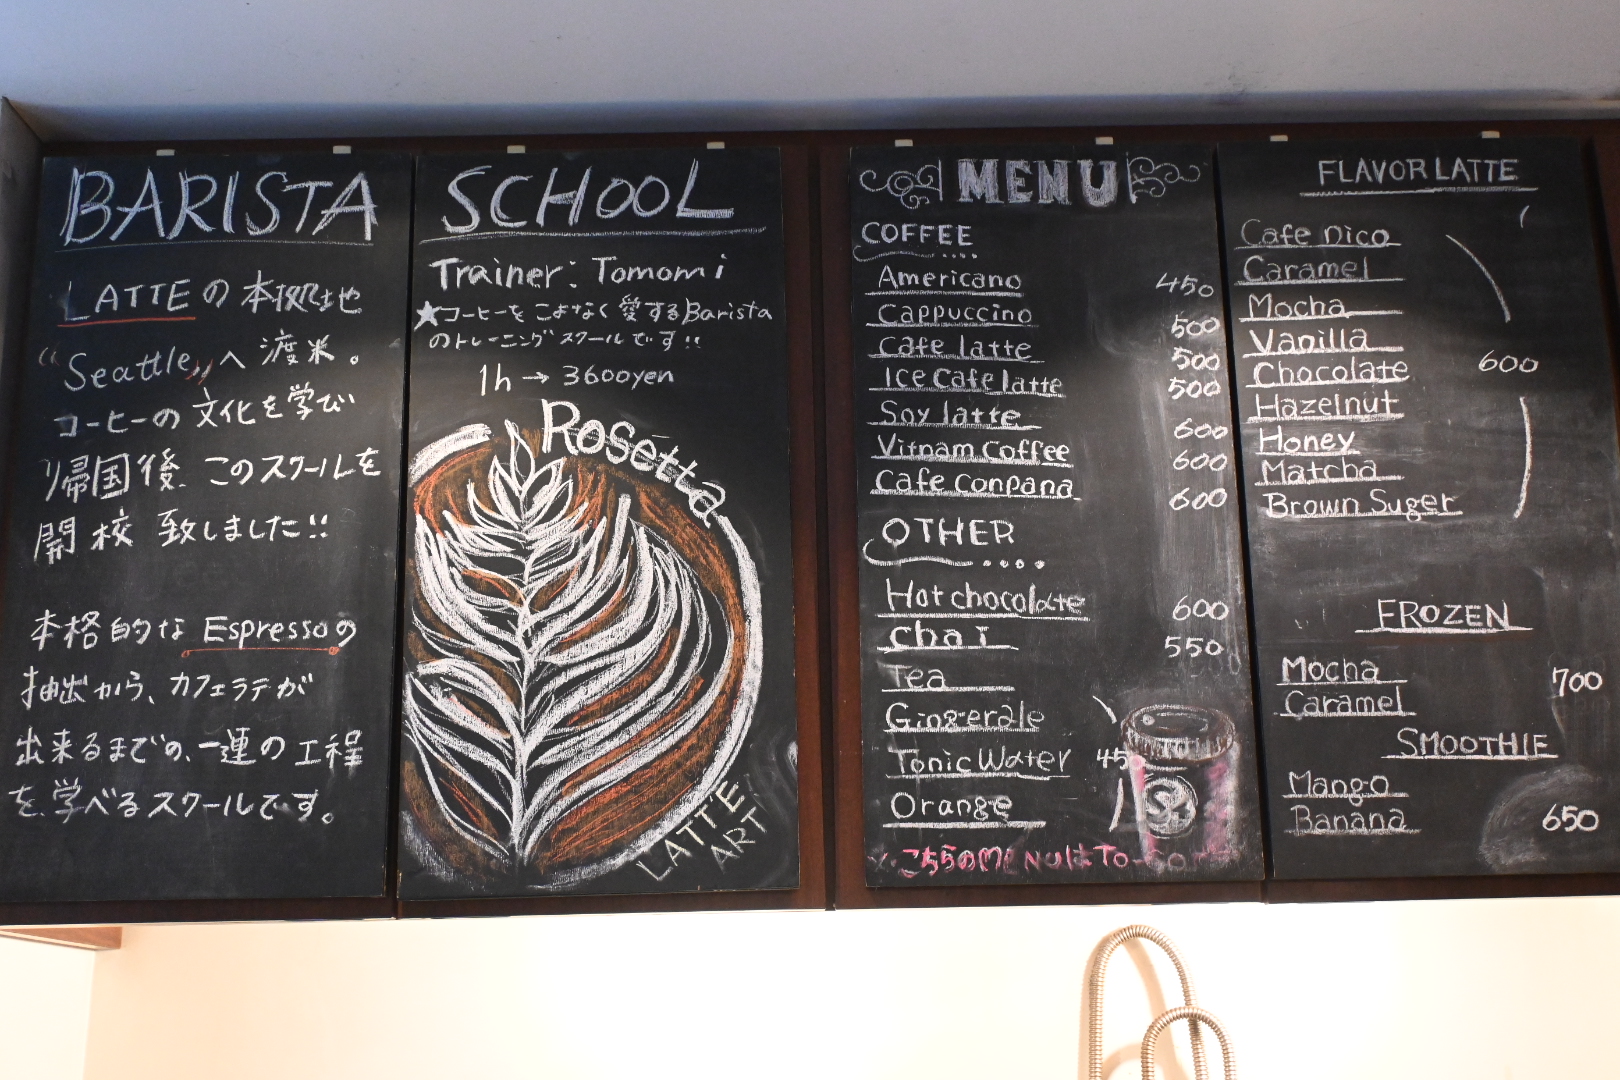 BARISTA
LATTEの本拠地
"Seattle"へ渡米。
コーヒーの文化を学び
帰国後、このスクールを
開校致しました!!
本格的なEspressoの
抽出から、カフェラテが
出来るまでの、一連の工程
を学べるスクールです。
SCHOOL
Trainer: Tomomi
★コーヒーをこよなく愛するBarista
のトレーニングスクールです!!
1h → 3600yen
Rosetta
LATTE
ART
MENU
COFFEE
Americano 450
Cappuccino 500
Cafe latte 500
Ice Cafe latte 500
Soy latte 600
Vitnam Coffee 600
Cafe Conpana 600
OTHER
Hot chocolate 600
chai 550
Tea
Gingerale
Tonic Water 45
Orange
こちらのMENUはTo-Go
FLAVOR LATTE
Cafe nico
Caramel
Mocha
Vanilla
Chocolate 600
Hazelnut
Honey
Matcha
Brown Suger
FROZEN
Mocha 700
Caramel
SMOOTHIE
Mango
Banana 650